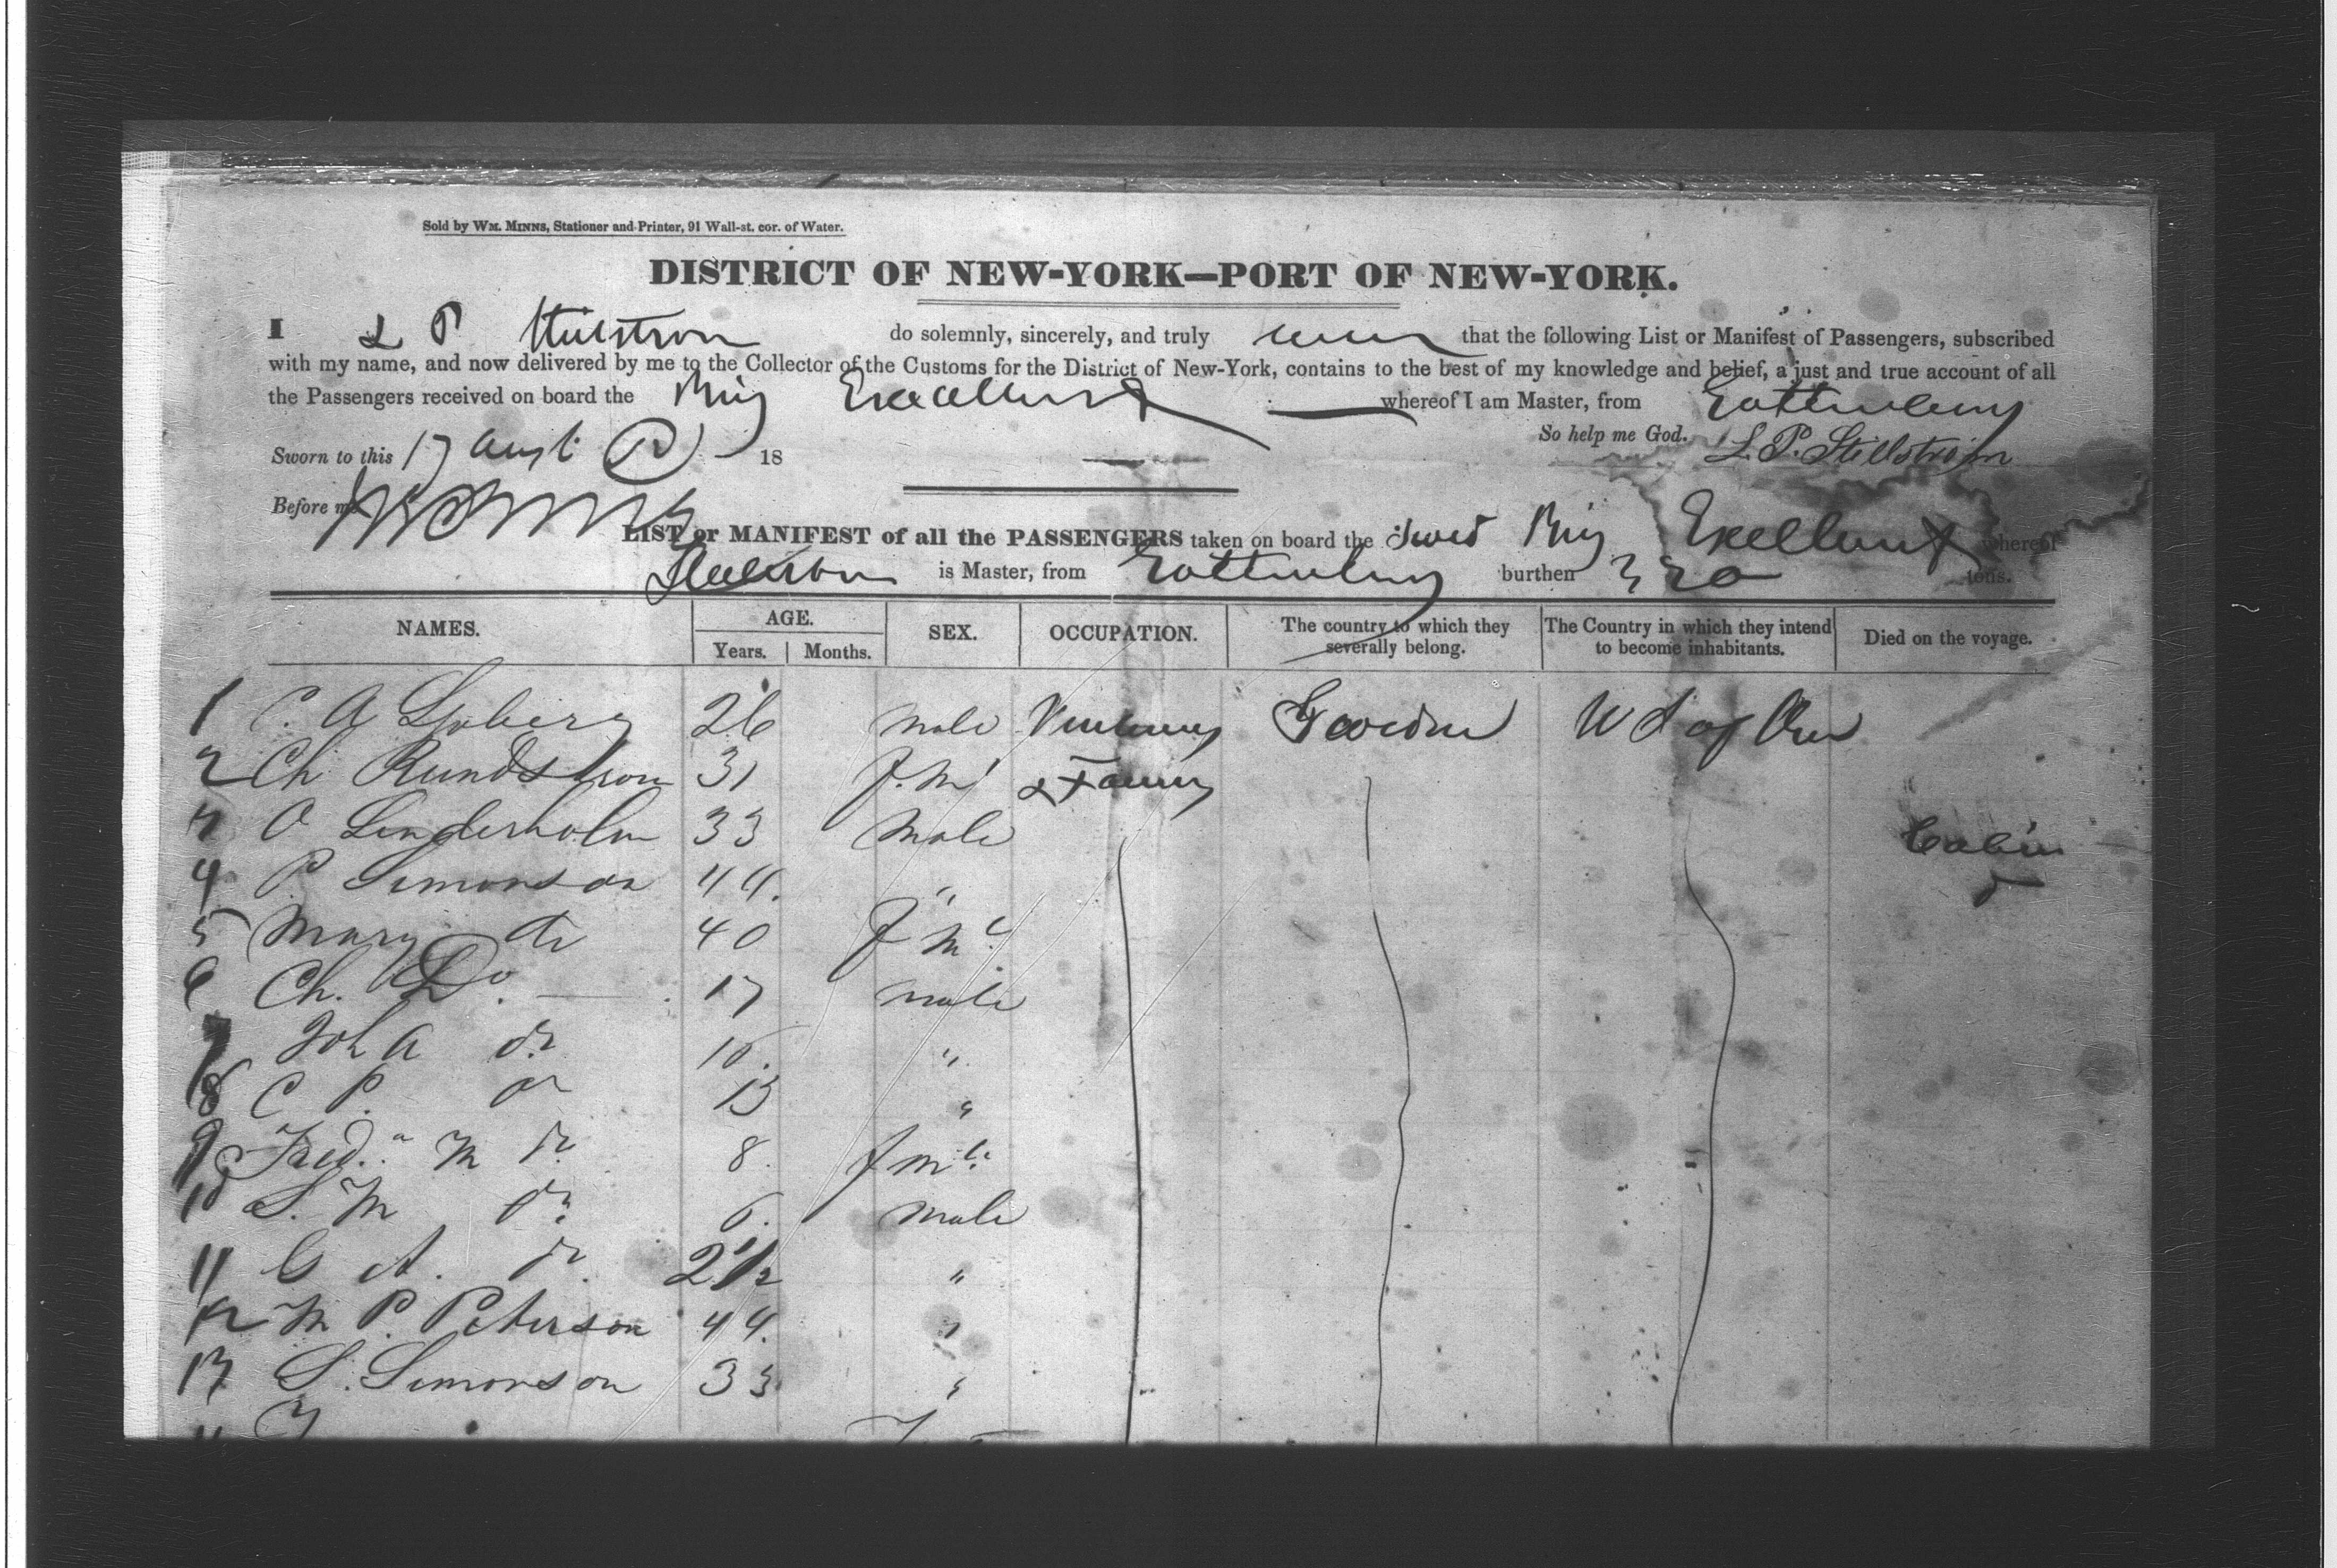 Sold by WM. MINNS, Stationer and Printer, 91 Wall-st. cor. of Water.
DISTRICT OF NEW-YORK—PORT OF NEW-YORK.
I L P Stilstrom do solemnly, sincerely, and truly swear that the following List or Manifest of Passengers, subscribed
with my name, and now delivered by me to the Collector of the Customs for the District of New-York, contains to the best of my knowledge and belief, a just and true account of all
the Passengers received on board the Brig Excellent whereof I am Master, from Gottenburg
So help me God. L. P. Stillström
Sworn to this 17 Augt 18
Before me
LIST or MANIFEST of all the PASSENGERS taken on board the Swed Brig Exellent whereof
is Master, from Gottenburg burthen 320 tons.
NAMES. AGE. Years. Months. SEX. OCCUPATION. The country to which they severally belong. The Country in which they intend to become inhabitants. Died on the voyage.
1 C. A 26 male Sweden U S of
2 Ch Rundstrom 31 F.m
3 O Linderholm 33 Male Cabin
4 P Simonson 44. "
5 Mary do 40 F m
6 Ch. Do. 17 male
7 Joh A do "
8 C P. do 13 "
9 Fred.a M do 8 Fmle
10 S. M do 6. Male
11 G A. do 2 1/2 "
12 M P. Peterson 44. "
13 S. Simonson 33 "